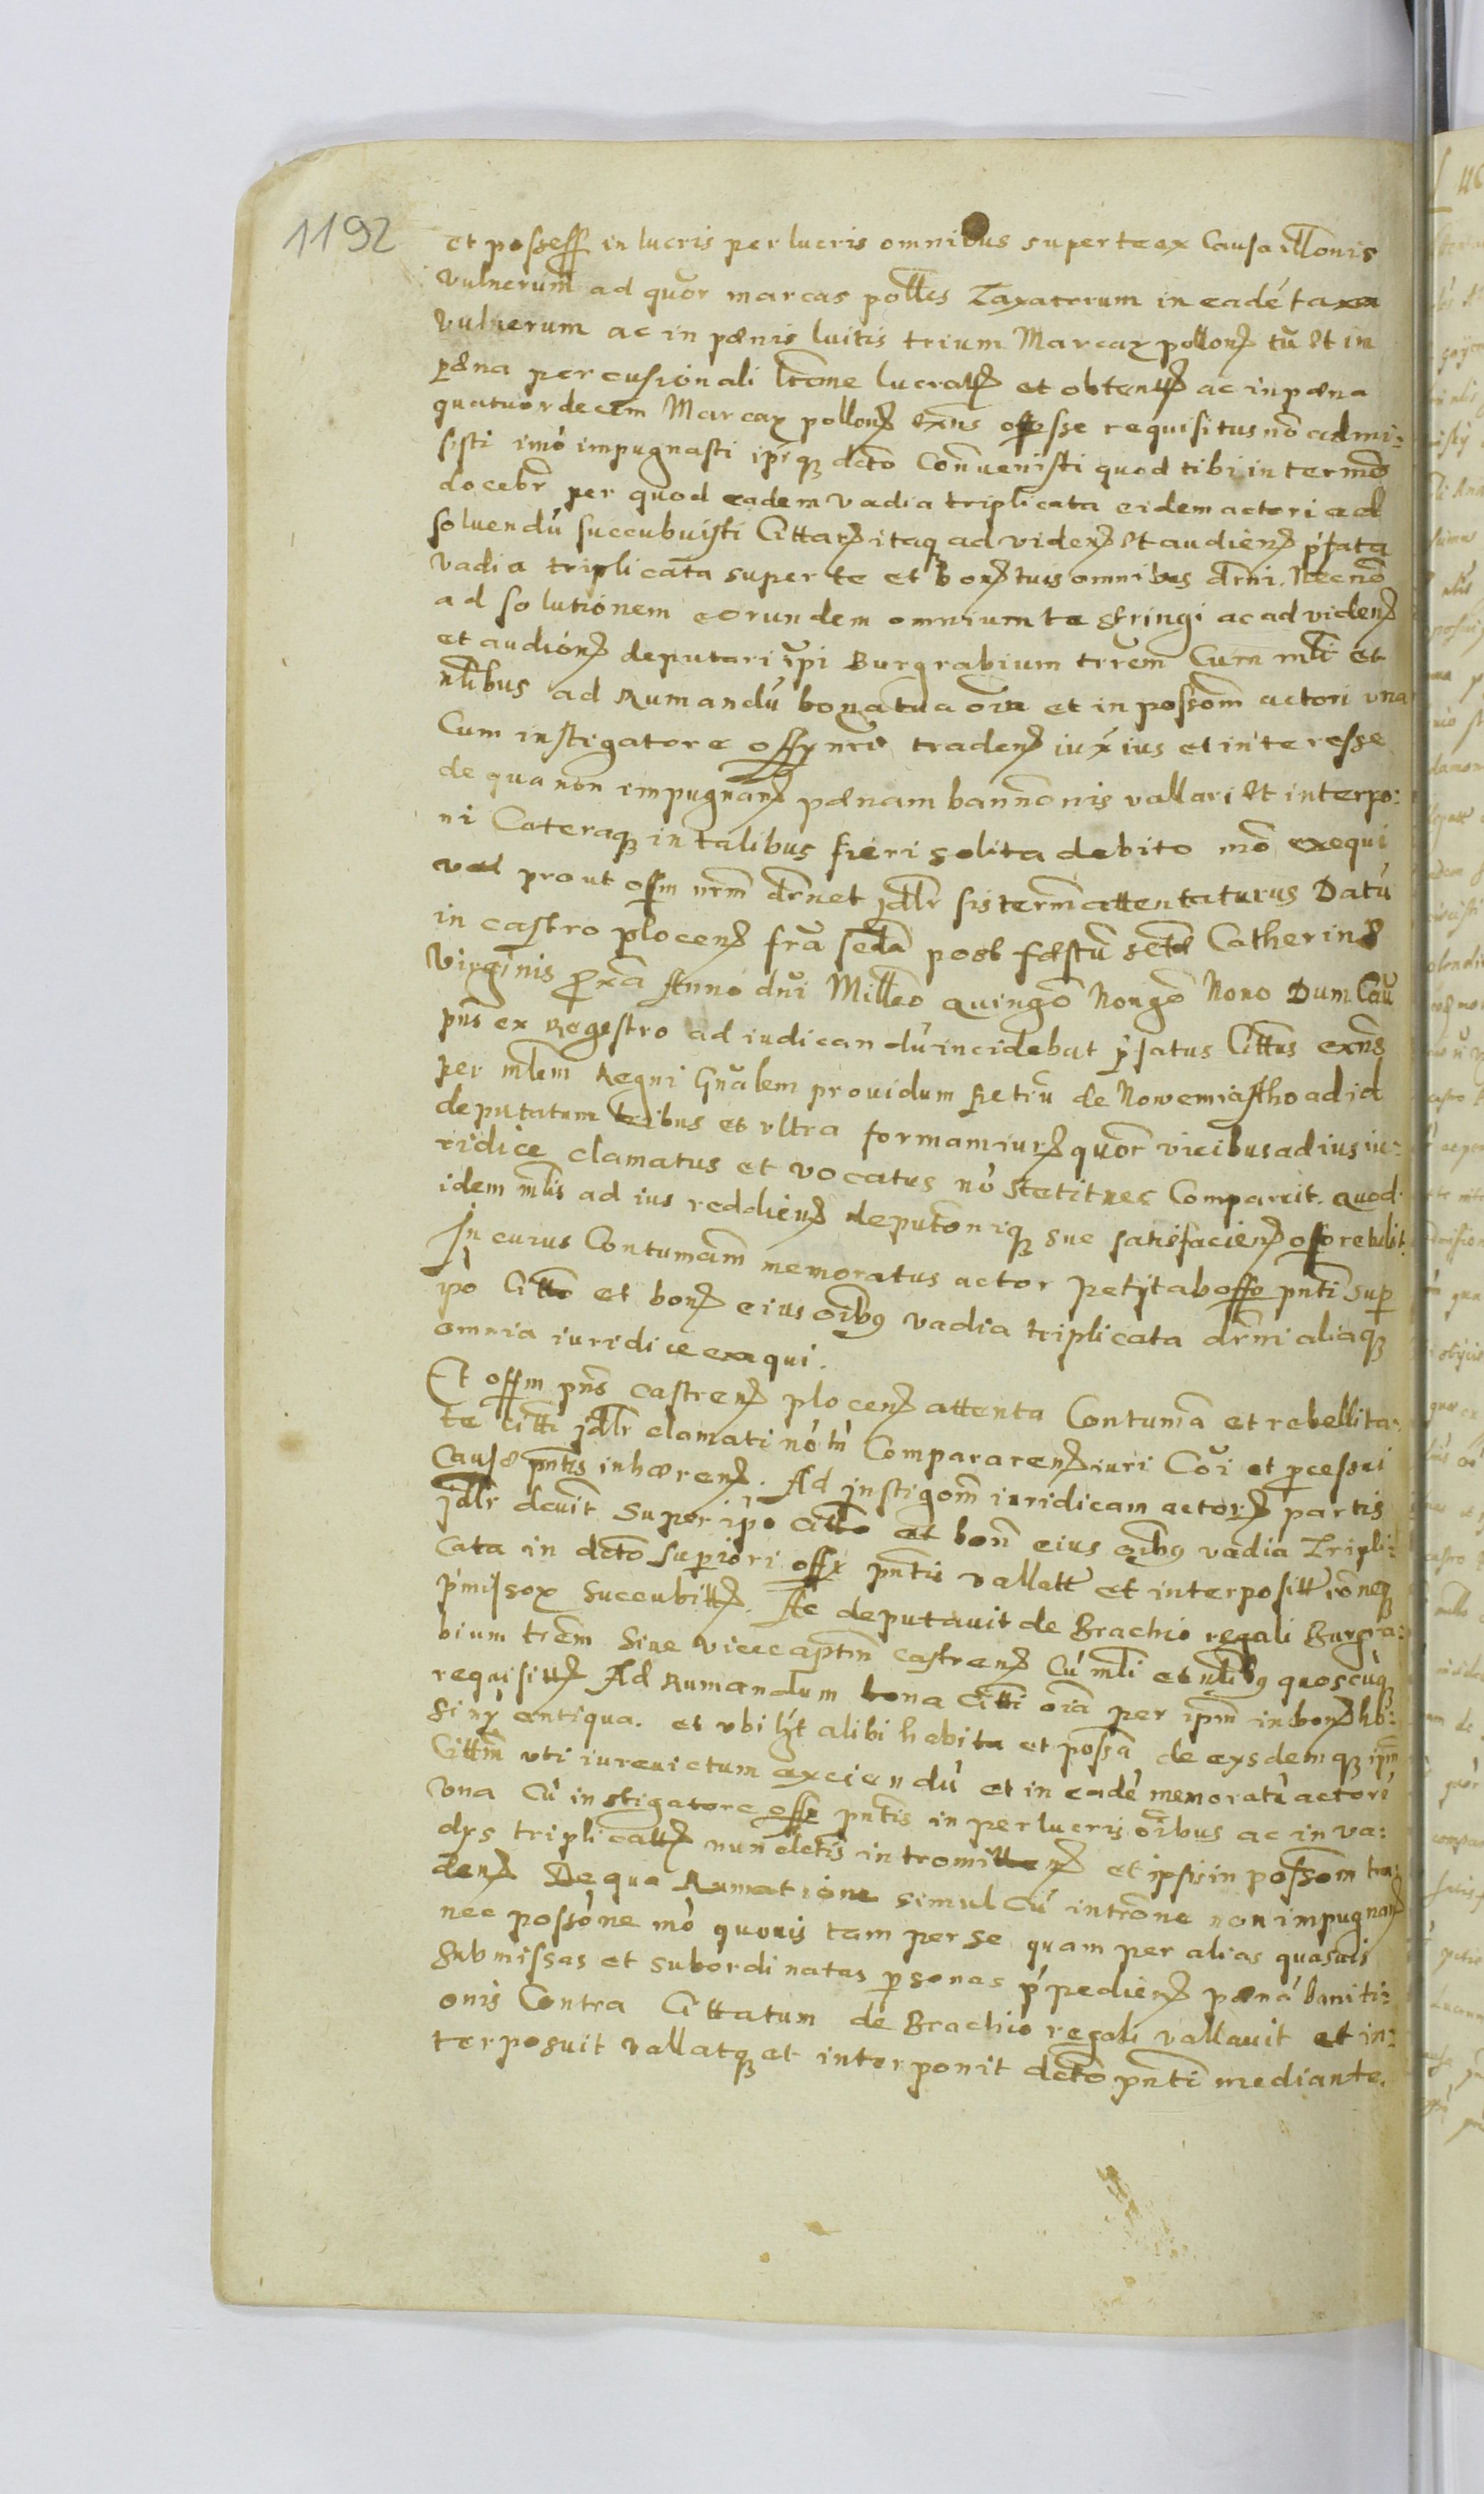 1192
et possess in lucris per lucris omnibus super te ex Causa illonis
vulnerum ad quor marcas polles Taxatorum in eadé taxa
vulnerum ac in pænis luitis trium Marcar pollon tũ et in
pæna percusionali lctone lucrat et obtent ac in pæna
quatuordecim Marcar pollon exns offosse requisitus nõ admi:
sisti imó impugnasti ipiq dcto Convenisti quod tibi in termõ
docebr per quod eadem vadia triplicata eidem actori ad
soluendú succubuisti Cittar itaq ad viden et audien pfata
vadia triplicata super te et bon tuis omnibus drni. Necnõ
ad solutionem eorundem omnium te stringi ac ad viden
et audion deputari ipi Burgrabium trrem Cum mli et
nlibus ad Rumandú bona tua oia et in possom actori una
Cum instigatore offy nri traden iux ius et interesse
de qua non impugnan pænam bannonis vallari et interpo:
ni Cæteraq in talibus fieri solita debito mõ exequi
vel prout offm nrm drnet jdlr sis term attentaturus Datú
in castro plocen fra scda post fæstũ sctæ Catherinæ
Virginis proxa Anno dni Milleo quingo Nongo Nono Dum Cau
pns ex Regestro ad iudicandú incidebat pfatus Citts exns
per mlem Regni Gnalem prouidum Petrũ de Nowemiastho ad id
deputatum tribus et vltra formam iur quor vicibus ad ius iu:
ridice clamatus et vocatus nó stetit nec Comparuit. quod
idem mlis ad ius reddien deputoniq sue satisfacien offo rebulit.
In cuius Contumam memoratus actor petijt ab offo pnti sup
ipo Citto et bon eius oibus vadia triplicata drni aliaq
omnia iuridice exequi.
Et offm pns castren plocen attenta Contuma et rebellita:
te citti jdlr clamati nó tn Comparen iuri Coi et pcessui
Causæ pntis inhæren. Ad instigom iuridicam actor partis
jdlr decuit super ipo citto et bon eius oibus vadia Tripli:
cata in dcto superiori offy pntis vallatt et interpositt ioneq
pmissor succubitt. Ac deputauit de Brachio regali Burgra:
bium trem siue vicecaptm castren Cú mli et nlibq quoscúq
requisitt Ad Rumandum bona Citti oia per ipm in bon hb:
siny antiqua. et vbi lzt alibi habita et possa de eysdemq ipm
Cittm vti iure victum exciendú et in eadé memoratú actoré
vna Cú instigatore offy pntis in perlucris oibus ac in va:
dys triplicatt nun eletis intromitten et ipsis in possom tra:
den De qua Rumatione simul Cú introne non impugnan
nec possóne mó quouis tam per se quam per alias quasuis
submissas et subordinatas psonas pʼpedien pæná baniti:
onis Contra Cittatum de Brachio regali vallauit et in:
terposuit vallatq et interponit dcto pnti mediante.